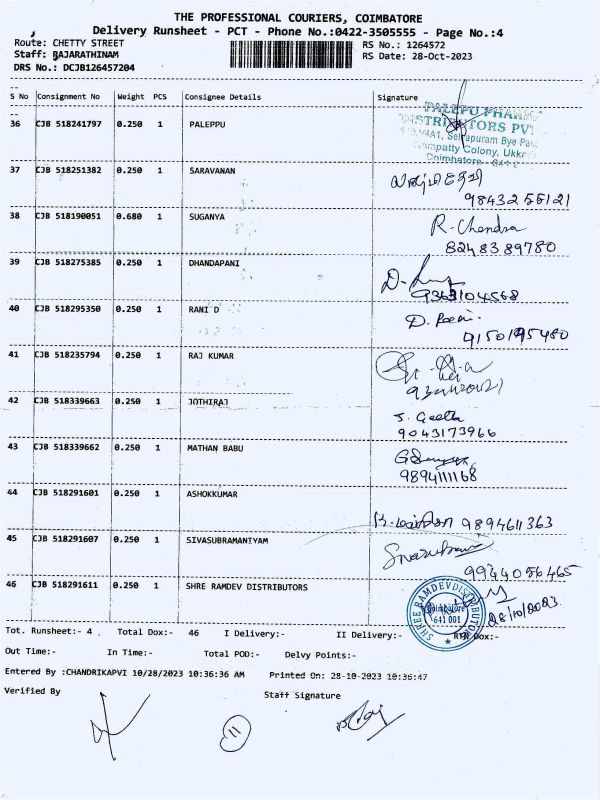 THE PROFESSIONAL COURIERS, COIMBATORE
Delivery Runsheet - PCT - Phone No.:0422-3505555 - Page No.:4
Route: CHETTY STREET RS No.: 1264572
Staff: BAJARATHINAM RS Date: 28-Oct-2023
DRS No.: DCJB126457204
S No Consignment No Weight PCS Consignee Details Signature
36 CJB 518241797 0.250 1 PALEPPU
PALEPU PHARMA
DISTRIBUTORS PVT
Colony, Ukk
Coimbatore
37 CJB 518251382 0.250 1 SARAVANAN
9843255121
38 CJB 518190051 0.680 1 SUGANYA R. Chandra
8248389780
39 CJB 518275385 0.250 1 DHANDAPANI
9363104568
40 CJB 518295350 0.250 1 RANI D D. Rani
41 CJB 518235794 0.250 1 RAJ KUMAR
42 CJB 518339663 0.250 1 JOTHIRAJ J. Geetha
9043173966
43 CJB 518339662 0.250 1 MATHAN BABU
9894111168
44 CJB 518291601 0.250 1 ASHOKKUMAR 9894611363
45 CJB 518291607 0.250 1 SIVASUBRAMANIYAM
9944056465
46 CJB 518291611 0.250 1 SHRE RAMDEV DISTRIBUTORS
SHREE RAMDEV DISTRIBUTORS
Coimbatore
641 001
28/10/2023
Tot. Runsheet:- 4 Total Dox:- 46 I Delivery:- II Delivery:- RTN Dox:-
Out Time:- In Time:- Total POD:- Delvy Points:-
Entered By :CHANDRIKAPVI 10/28/2023 10:36:36 AM Printed On: 28-10-2023 10:36:47
Verified By Staff Signature
11